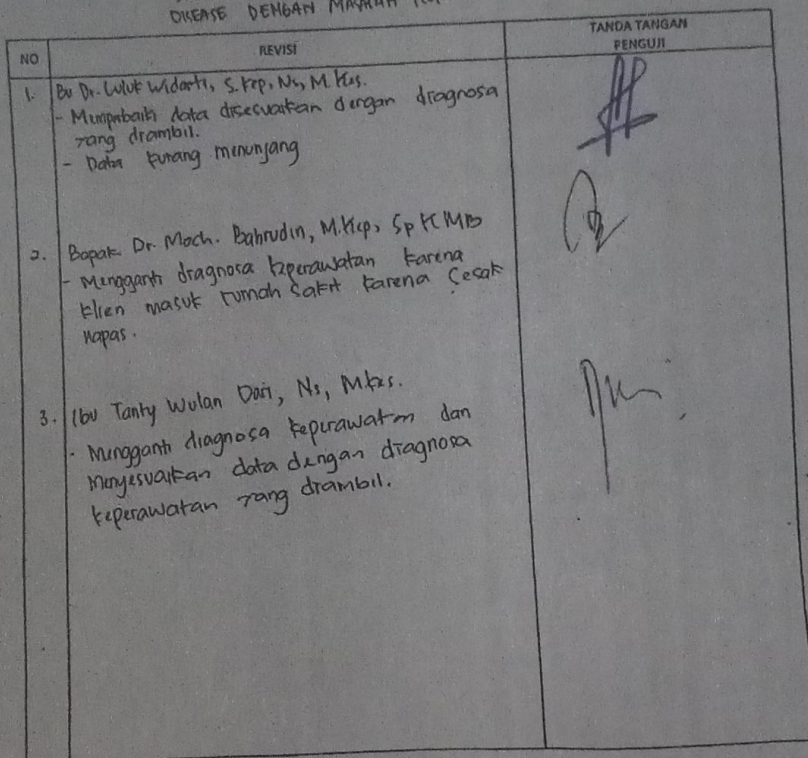 DISEASE DENGAN MASALAH
NO
REVISI
TANDA TANGAN
PENGUJI
1. Bu Dr. Luluk Widarti, S.Kep, Ns, M.Kes.
- Memperbaiki data disesuaikan dengan diagnosa
yang diambil.
- Data kurang menunjang
2. Bapak Dr. Moch. Bahrudin, M.Kep, Sp KMB
- Mengganti diagnosa keperawatan karena
klien masuk rumah sakit karena sesak
napas.
3. Ibu Tanty Wulan Dari, Ns, M.Kes.
- Mengganti diagnosa keperawatan dan
menyesuaikan data dengan diagnosa
keperawatan yang diambil.